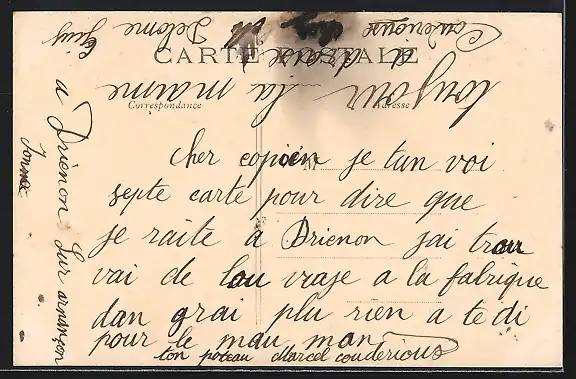 CARTE POSTALE
Correspondance
Adresse
M
Cher copien je tan voi
septe carte pour dire que
je raite a Brienon jai trou
vai de lou vraje a la fabrique
dan grai plu rien a te di
pour le mau man
ton poteau Marcel couderious
a Brienon Sur armançon
Yonne
toujour la maime
adresse
Delorme Guy